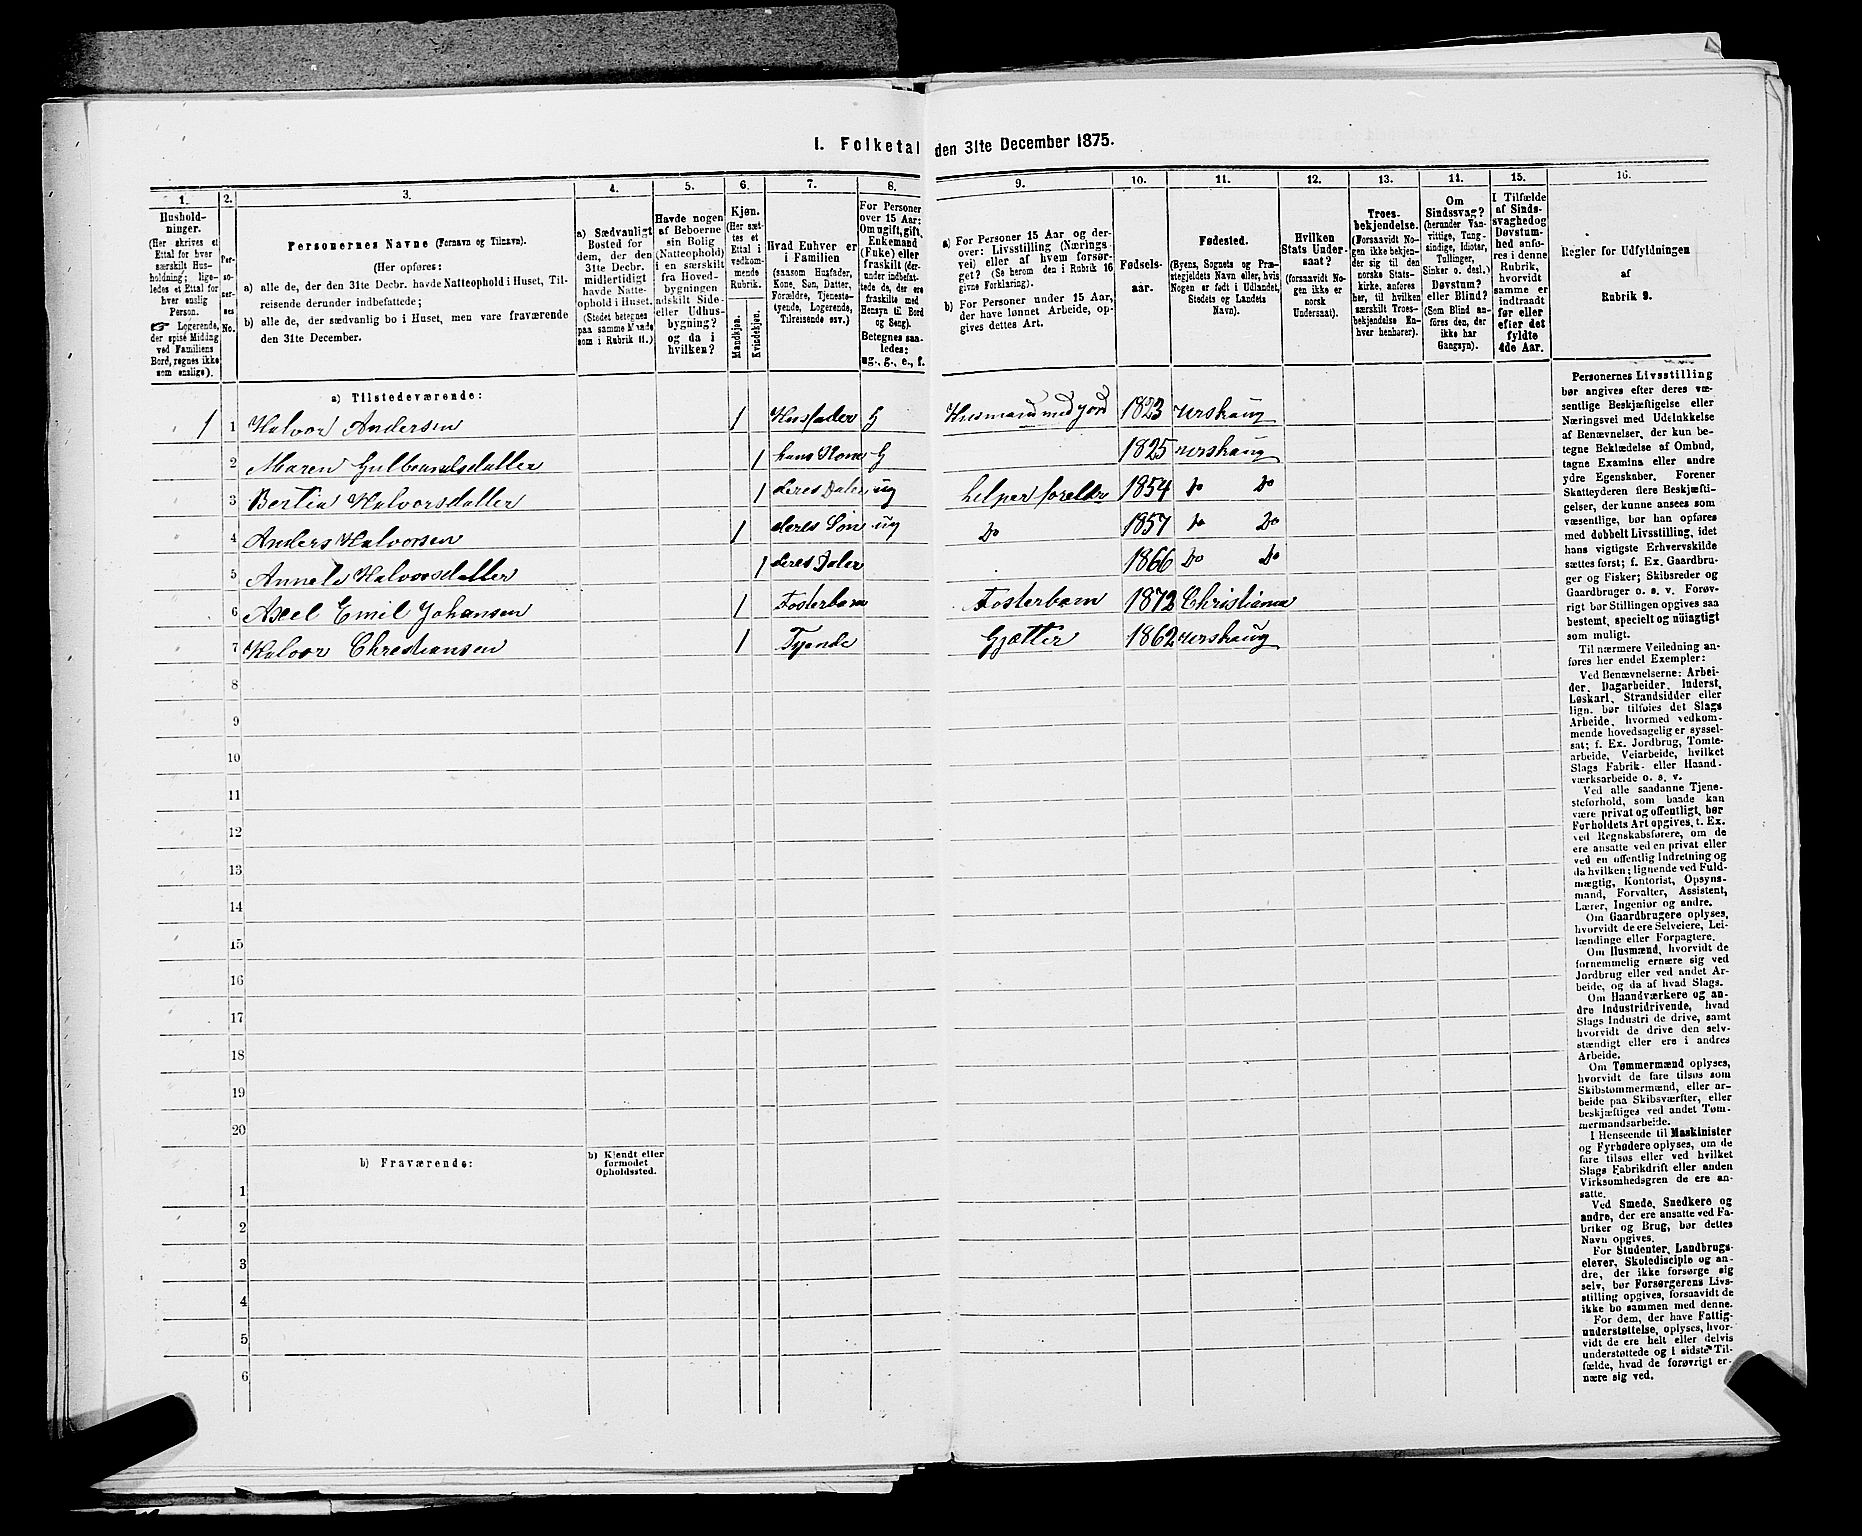 I. Folketal den 31te December 1875.
1. 2. 3. 4. 5. 6. 7. 8. 9. 10. 11. 12. 13. 14. 15. 16.
Hushold-
ninger.
(Her skrives et
Ettal for hver
særskilt Hus-
holdning; lige-
ledes et Ettal for
hver enslig
Person.
☞ Logerende,
der spise Middag
ved Familiens
Bord, regnes ikke
som enslige).
Per-
so-
ner-
nes
No.
Personernes Navne (Fornavn og Tilnavn).
(Her opføres:
a) alle de, der den 31te Decbr. havde Natteophold i Huset, Til-
reisende derunder indbefattede;
b) alle de, der sædvanlig bo i Huset, men vare fraværende
den 31te December.
a) Sædvanligt
Bosted for
dem, der den
31te Decbr.
midlertidigt
havde Natte-
ophold i Huset.
(Stedet betegnes
paa samme Maade
som i Rubrik 11.)
Havde nogen
af Beboerne
sin Bolig
(Natteophold)
i en særskilt
fra Hoved-
bygningen
adskilt Side-
eller Udhus-
bygning?
og da i
hvilken?
Kjøn.
(Her sæt-
tes et
Ettal i
vedkom-
mende
Rubrik.
Mandkjøn.
Kvindekjøn.
Hvad Enhver er
i Familien
(saasom Husfader,
Kone, Søn, Datter,
Forældre, Tjeneste-
tyende, Logerende,
Tilreisende osv.)
For Personer
over 15 Aar:
Om ugift, gift,
Enkemand
(Enke) eller
fraskilt (der-
under indbefat-
tede de, der ere
fraskilte med
Hensyn til Bord
og Seng).
Betegnes saa-
ledes:
ug., g., e., f.
a) For Personer 15 Aar og der-
over: Livsstilling (Nærings-
vei) eller af hvem forsør-
get? (Se herom den i Rubrik 16
givne Forklaring).
b) For Personer under 15 Aar,
der have lønnet Arbeide, op-
gives dettes Art.
Fødsels-
aar.
Fødested.
(Byens, Sognets og Præ-
stegjeldets Navn eller, hvis
Nogen er født i Udlandet,
Stedets og Landets
Navn).
Hvilken
Stats Under-
saat?
(forsaavidt No-
gen ikke er
norsk
Undersaat).
Troes-
bekjendelse.
(Forsaavidt No-
gen ikke bekjen-
der sig til den
norske Stats-
kirke, anføres
her, til hvilken
særskilt Troes-
bekjendelse En-
hver henhører).
Om
Sindssvag?
(herunder Van-
vittige, Tung-
sindige, Idioter,
Tullinger,
Sinker o. desl.)
Døvstum?
eller Blind?
(Som Blind an-
føres den, der
ikke har
Gangsyn).
I Tilfælde
af Sinds-
svaghed og
Døvstum-
hed anfø-
res i denne
Rubrik,
hvorvidt
samme er
indtraadt
før eller
efter det
fyldte
4de Aar.
Regler for Udfyldningen
af
Rubrik 9.
a) Tilstedeværende:
1 1 Halvor Andersen 1 Husfader G Husmand med jord 1823 urshaug
2 Maren Gulbrandsdatter 1 hans Kone G 1825 urshaug
3 Bertia Halvorsdatter 1 deres Dater ug helper foreldr 1854 Do Do
4 Anders Halvorsen 1 deres Søn ug Do 1857 Do Do
5 Annete Halvorsdatter 1 deres Dater 1866 Do Do
6 Axel Emil Johansen 1 Fosterbarn Fosterbarn 1872 Christiania
7 Halvor Christiansen 1 Tyende Gjætter 1862 urshaug
8
9
10
11
12
13
14
15
16
17
18
19
20
b) Fraværende:
b) Kjendt eller
formodet
Opholdssted.
1
2
3
4
5
6
Personernes Livsstilling
bør angives efter deres væ-
sentlige Beskjæftigelse eller
Næringsvei med Udelukkelse
af Benævnelser, der kun be-
tegne Beklædelse af Ombud,
tagne Examina eller andre
ydre Egenskaber. Forener
Skatteyderen flere Beskjæfti-
gelser, der kunne ansees som
væsentlige, bør han opføres
med dobbelt Livsstilling, idet
hans vigtigste Erhvervskilde
sættes først; f. Ex. Gaardbru-
ger og Fisker; Skibsreder og
Gaardbruger o. s. v. Forøv-
rigt bør Stillingen opgives saa
bestemt, specielt og nøiagtigt
som muligt.
Til nærmere Veiledning an-
føres her endel Exempler:
Ved Benævnelserne: Arbei-
der, Dagarbeider, Inderst,
Løskarl, Strandsidder eller
lign. bør tilføies det Slags
Arbeide, hvormed vedkom-
mende hovedsagelig er syssel-
sat; f. Ex. Jordbrug, Tomte-
arbeide, Veiarbeide, hvilket
Slags Fabrik- eller Haand-
værksarbeide o. s. v.
Ved alle saadanne Tjene-
steforhold, som baade kan
være privat og offentligt, bør
Forholdets Art opgives, t. Ex.
ved Regnskabsførere, om de
ere ansatte ved en privat eller
ved en offentlig Indretning og
da hvilken; lignende ved Fuld-
mægtig, Kontorist, Opsyns-
mand, Forvalter, Assistent,
Lærer, Ingeniør og andre.
Om Gaardbrugere oplyses,
hvorvidt de ere Selveiere, Lei-
lændinge eller Forpagtere.
Om Husmænd, hvorvidt de
fornemmelig ernære sig ved
Jordbrug eller ved andet Ar-
beide, og da af hvad Slags.
Om Haandværkere og an-
dre Industridrivende, hvad
Slags Industri de drive, samt
hvorvidt de drive den selv-
stændigt eller ere i andres
Arbeide.
Om Tømmermænd oplyses,
hvorvidt de fare tilsøs som
Skibstømmermænd, eller ar-
beide paa Skibsværfter, eller
beskjæftiges ved andet Tøm-
mermandsarbeide.
I Henseende til Maskinister
og Fyrbødere oplyses, om de
fare tilsøs eller ved hvilket
Slags Fabrikdrift eller anden
Virksomhedsgren de ere an-
satte.
Ved Smede, Snedkere og
andre, der ere ansatte ved Fa-
briker og Brug, bør dettes
Navn opgives.
For Studenter, Landbrugs-
elever, Skoledisciple og an-
dre, der ikke forsørge sig
selv, bør Forsørgerens Livs-
stilling opgives, forsaavidt de
ikke bo sammen med denne.
For dem, der have Fattig-
understøttelse, oplyses, hvor-
vidt de ere helt eller delvis
understøttede og i sidste Til-
fælde, hvad de forøvrigt er-
nære sig ved.